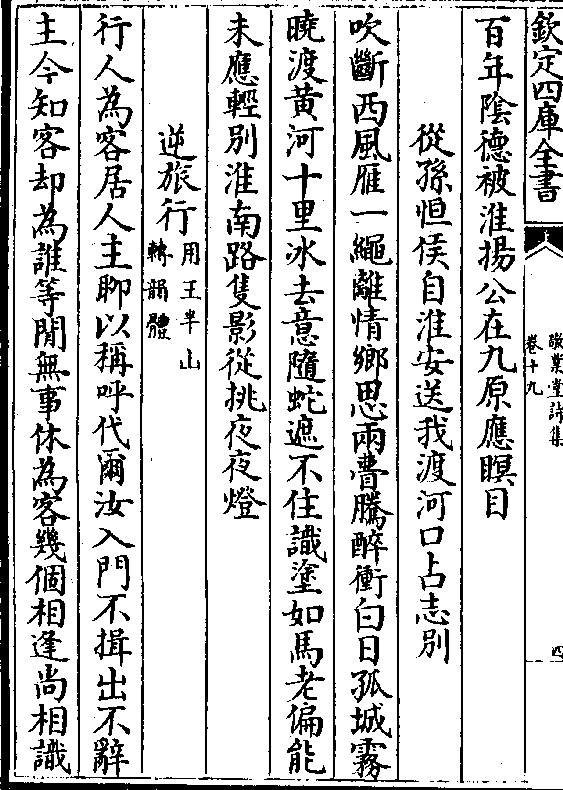 欽定四庫全書
敬業堂詩集
卷十九
四
百年陰德被淮揚公在九原應瞑目
從孫恒侯自淮安送我渡河口占志別
吹斷西風雁一繩離情鄉思兩瞢騰醉衝白日孤城霧
曉渡黄河十里冰去意隨蛇遮不住識塗如馬老偏能
未應輕别淮南路隻影從挑夜夜燈
逆旅行
用王半山
轉韻體
行人為客居人主聊以稱呼代爾汝入門不揖出不辭
主今知客却為誰等閒無事休為客幾個相逢尚相識